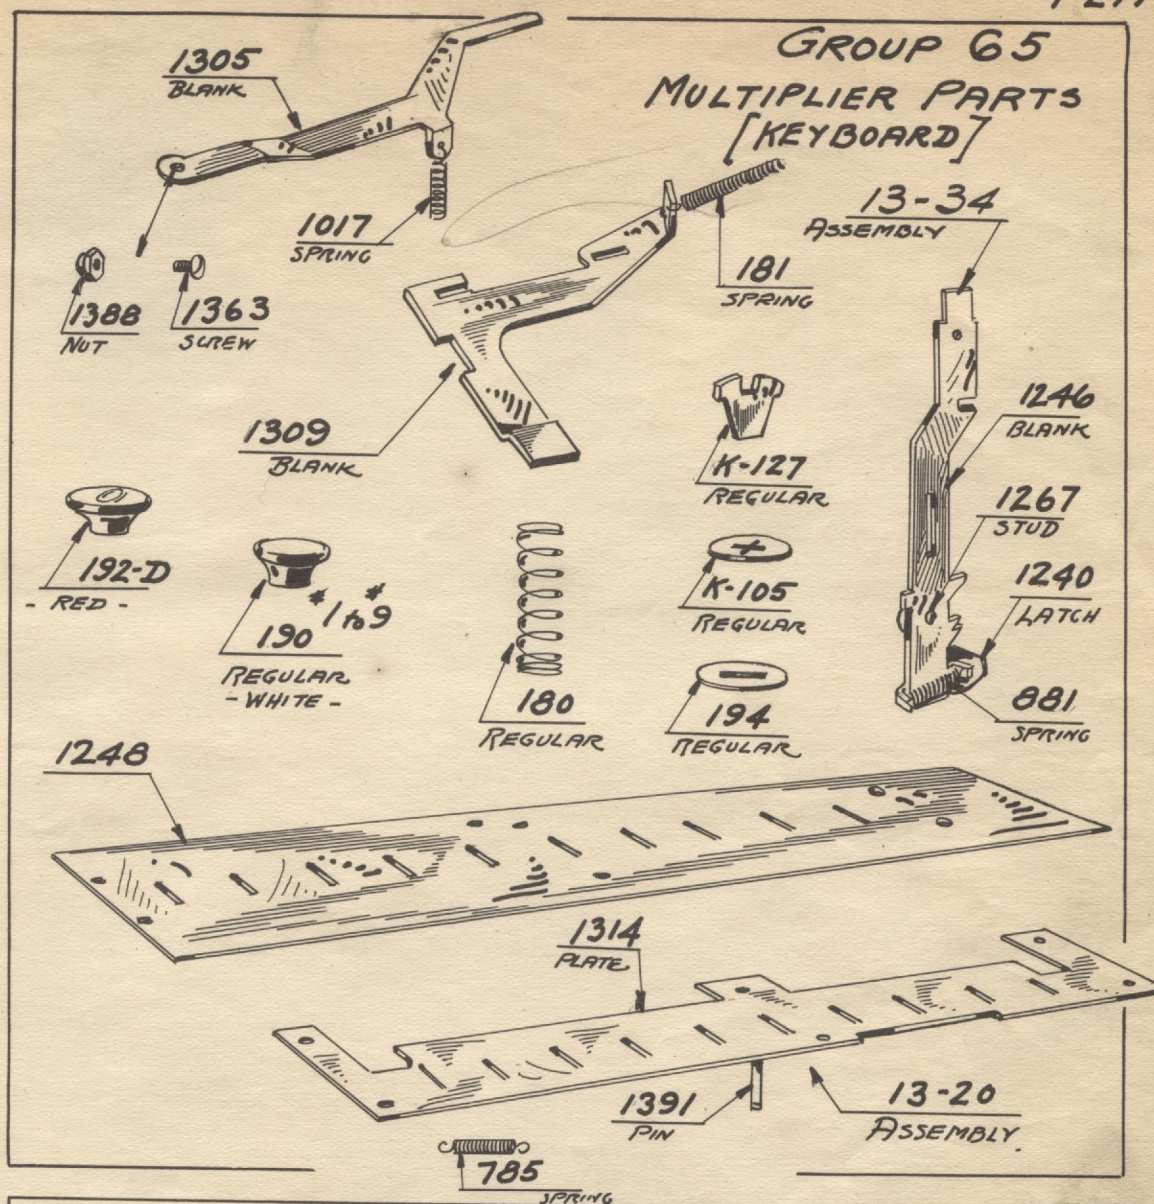 GROUP 65
MULTIPLIER PARTS
[KEYBOARD]
1305
BLANK
1017
SPRING
1388
NUT
1363
SCREW
181
SPRING
13-34
ASSEMBLY
1309
BLANK
K-127
REGULAR
1246
BLANK
1267
STUD
1240
LATCH
881
SPRING
192-D
- RED -
0
190 #1 to #9
REGULAR
- WHITE -
180
REGULAR
+
K-105
REGULAR
194
REGULAR
1248
1314
PLATE
1391
PIN
13-20
ASSEMBLY
785
SPRING